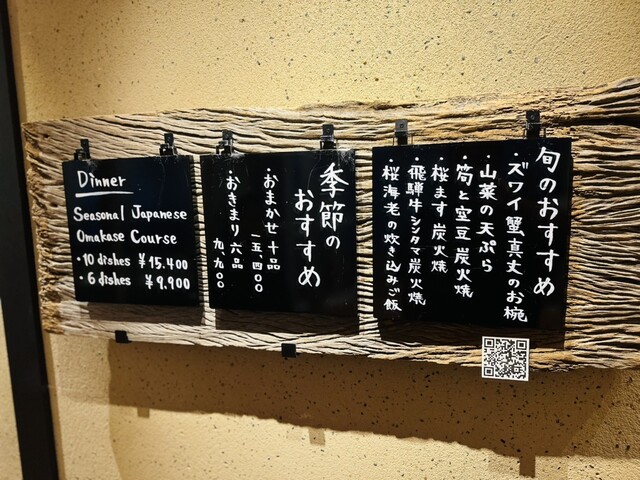 Dinner
Seasonal Japanese
Omakase Course
・10 dishes ¥15.400
・6 dishes ¥9.900
季節の
おすすめ
・おまかせ十品
一五、四〇〇
・おきまり六品
九、九〇〇
旬のおすすめ
・ズワイ蟹真丈のお椀
・山菜の天ぷら
・筍と空豆炭火焼
・桜ます炭火焼
・飛騨牛シンタマ炭火焼
・桜海老の炊き込みご飯